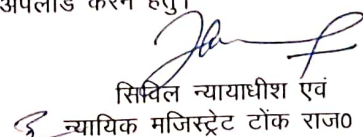 अपलोड करने हेतु।
सिविल न्यायाधीश एवं
न्यायिक मजिस्ट्रेट टोंक राज0